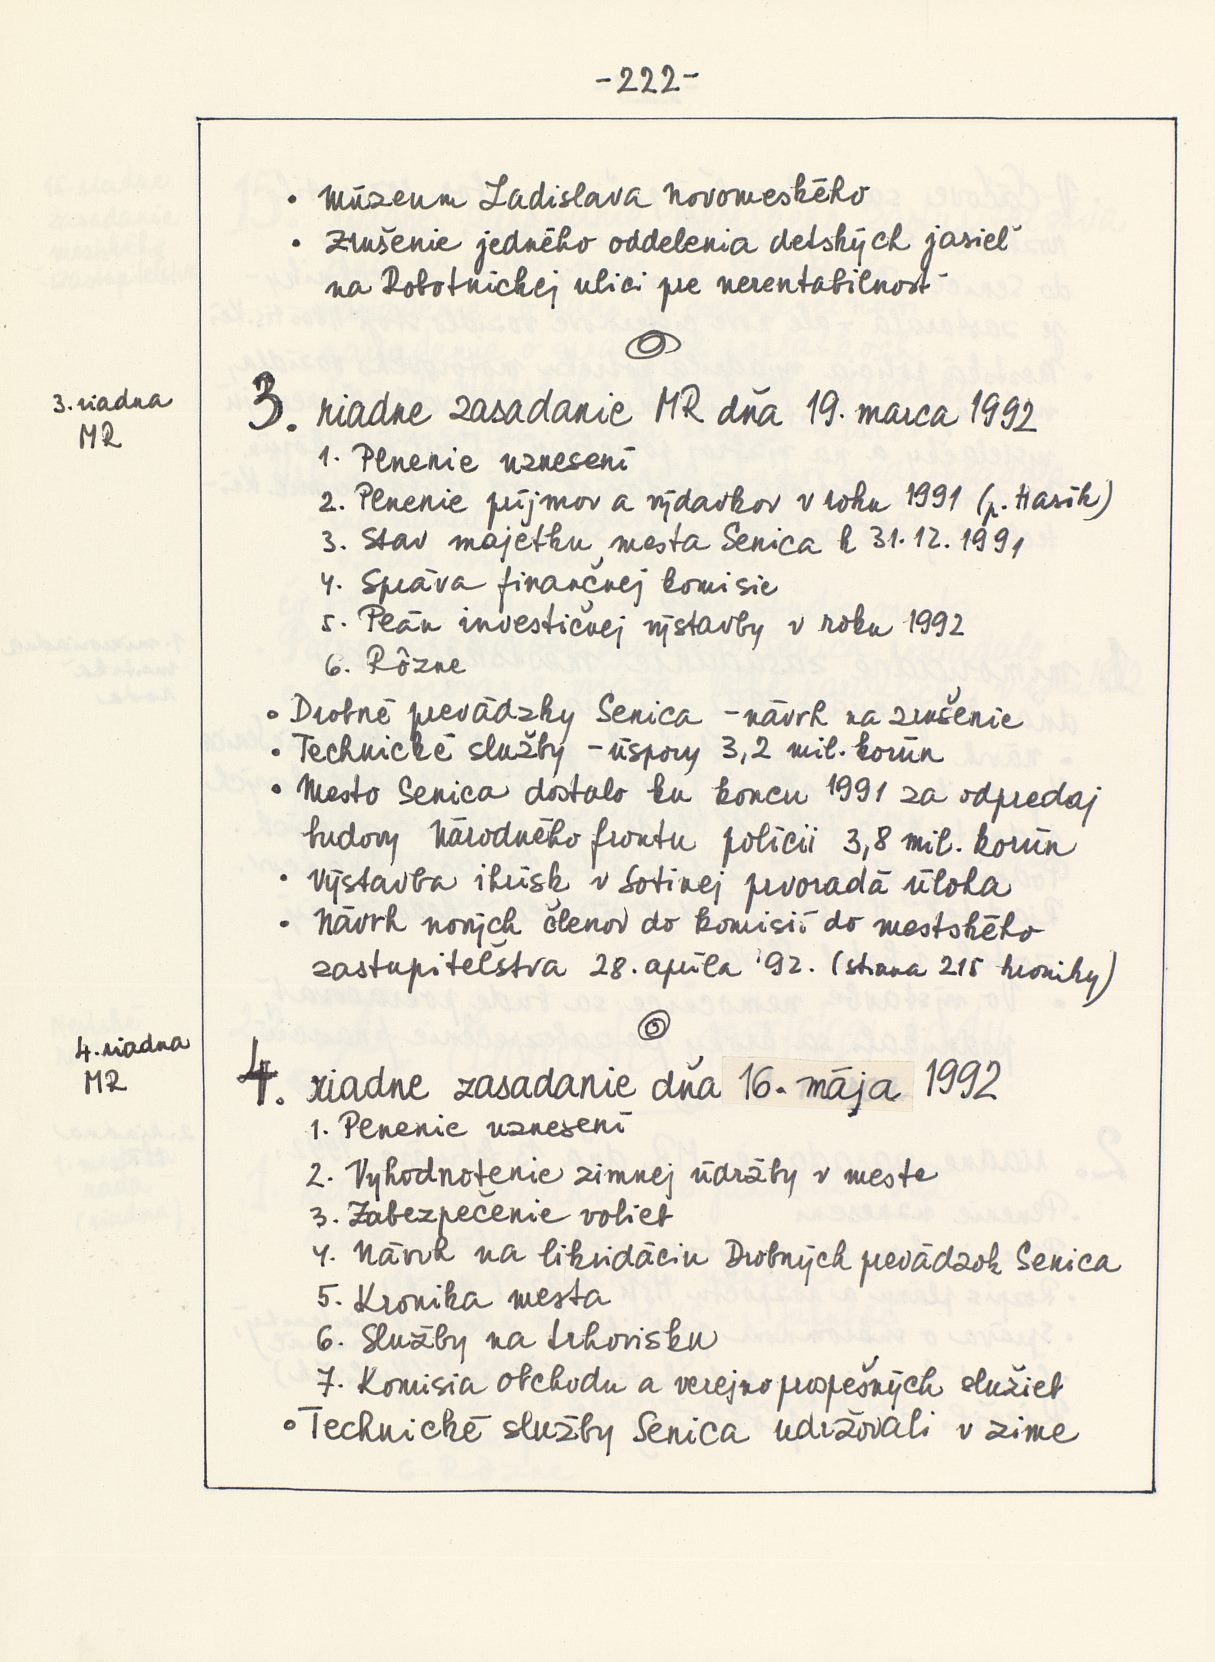 -222-
• Múzeum Ladislava Novomeského
• Zrušenie jedného oddelenia detských jaslí
na Robotníckej ulici pre nerentabilnosť
3. riadna
MR
3. riadne zasadanie MR dňa 19. marca 1992
1. Plnenie uznesení
2. Plnenie príjmov a výdavkov v roku 1991 (p. Hasík)
3. Stav majetku mesta Senica k 31.12.1991
4. Správa finančnej komisie
5. Plán investičnej výstavby v roku 1992
6. Rôzne
• Drobné prevádzky Senica - návrh na zrušenie
• Technické služby - úspory 3,2 mil. korún
• Mesto Senica dostalo ku koncu 1991 za odpredaj
budovy Národného frontu polícii 3,8 mil. korún
• Výstavba ihrísk v Sotinej prvoradá úloha
• Návrh nových členov do komisií do mestského
zastupiteľstva 28. apríla '92. (strana 215 kroniky)
4. riadna
MR
4. riadne zasadanie dňa 16. mája 1992
1. Plnenie uznesení
2. Vyhodnotenie zimnej údržby v meste
3. Zabezpečenie volieb
4. Návrh na likvidáciu Drobných prevádzok Senica
5. Kronika mesta
6. Služby na trhovisku
7. Komisia obchodu a verejnoprospešných služieb
• Technické služby Senica udržovali v zime